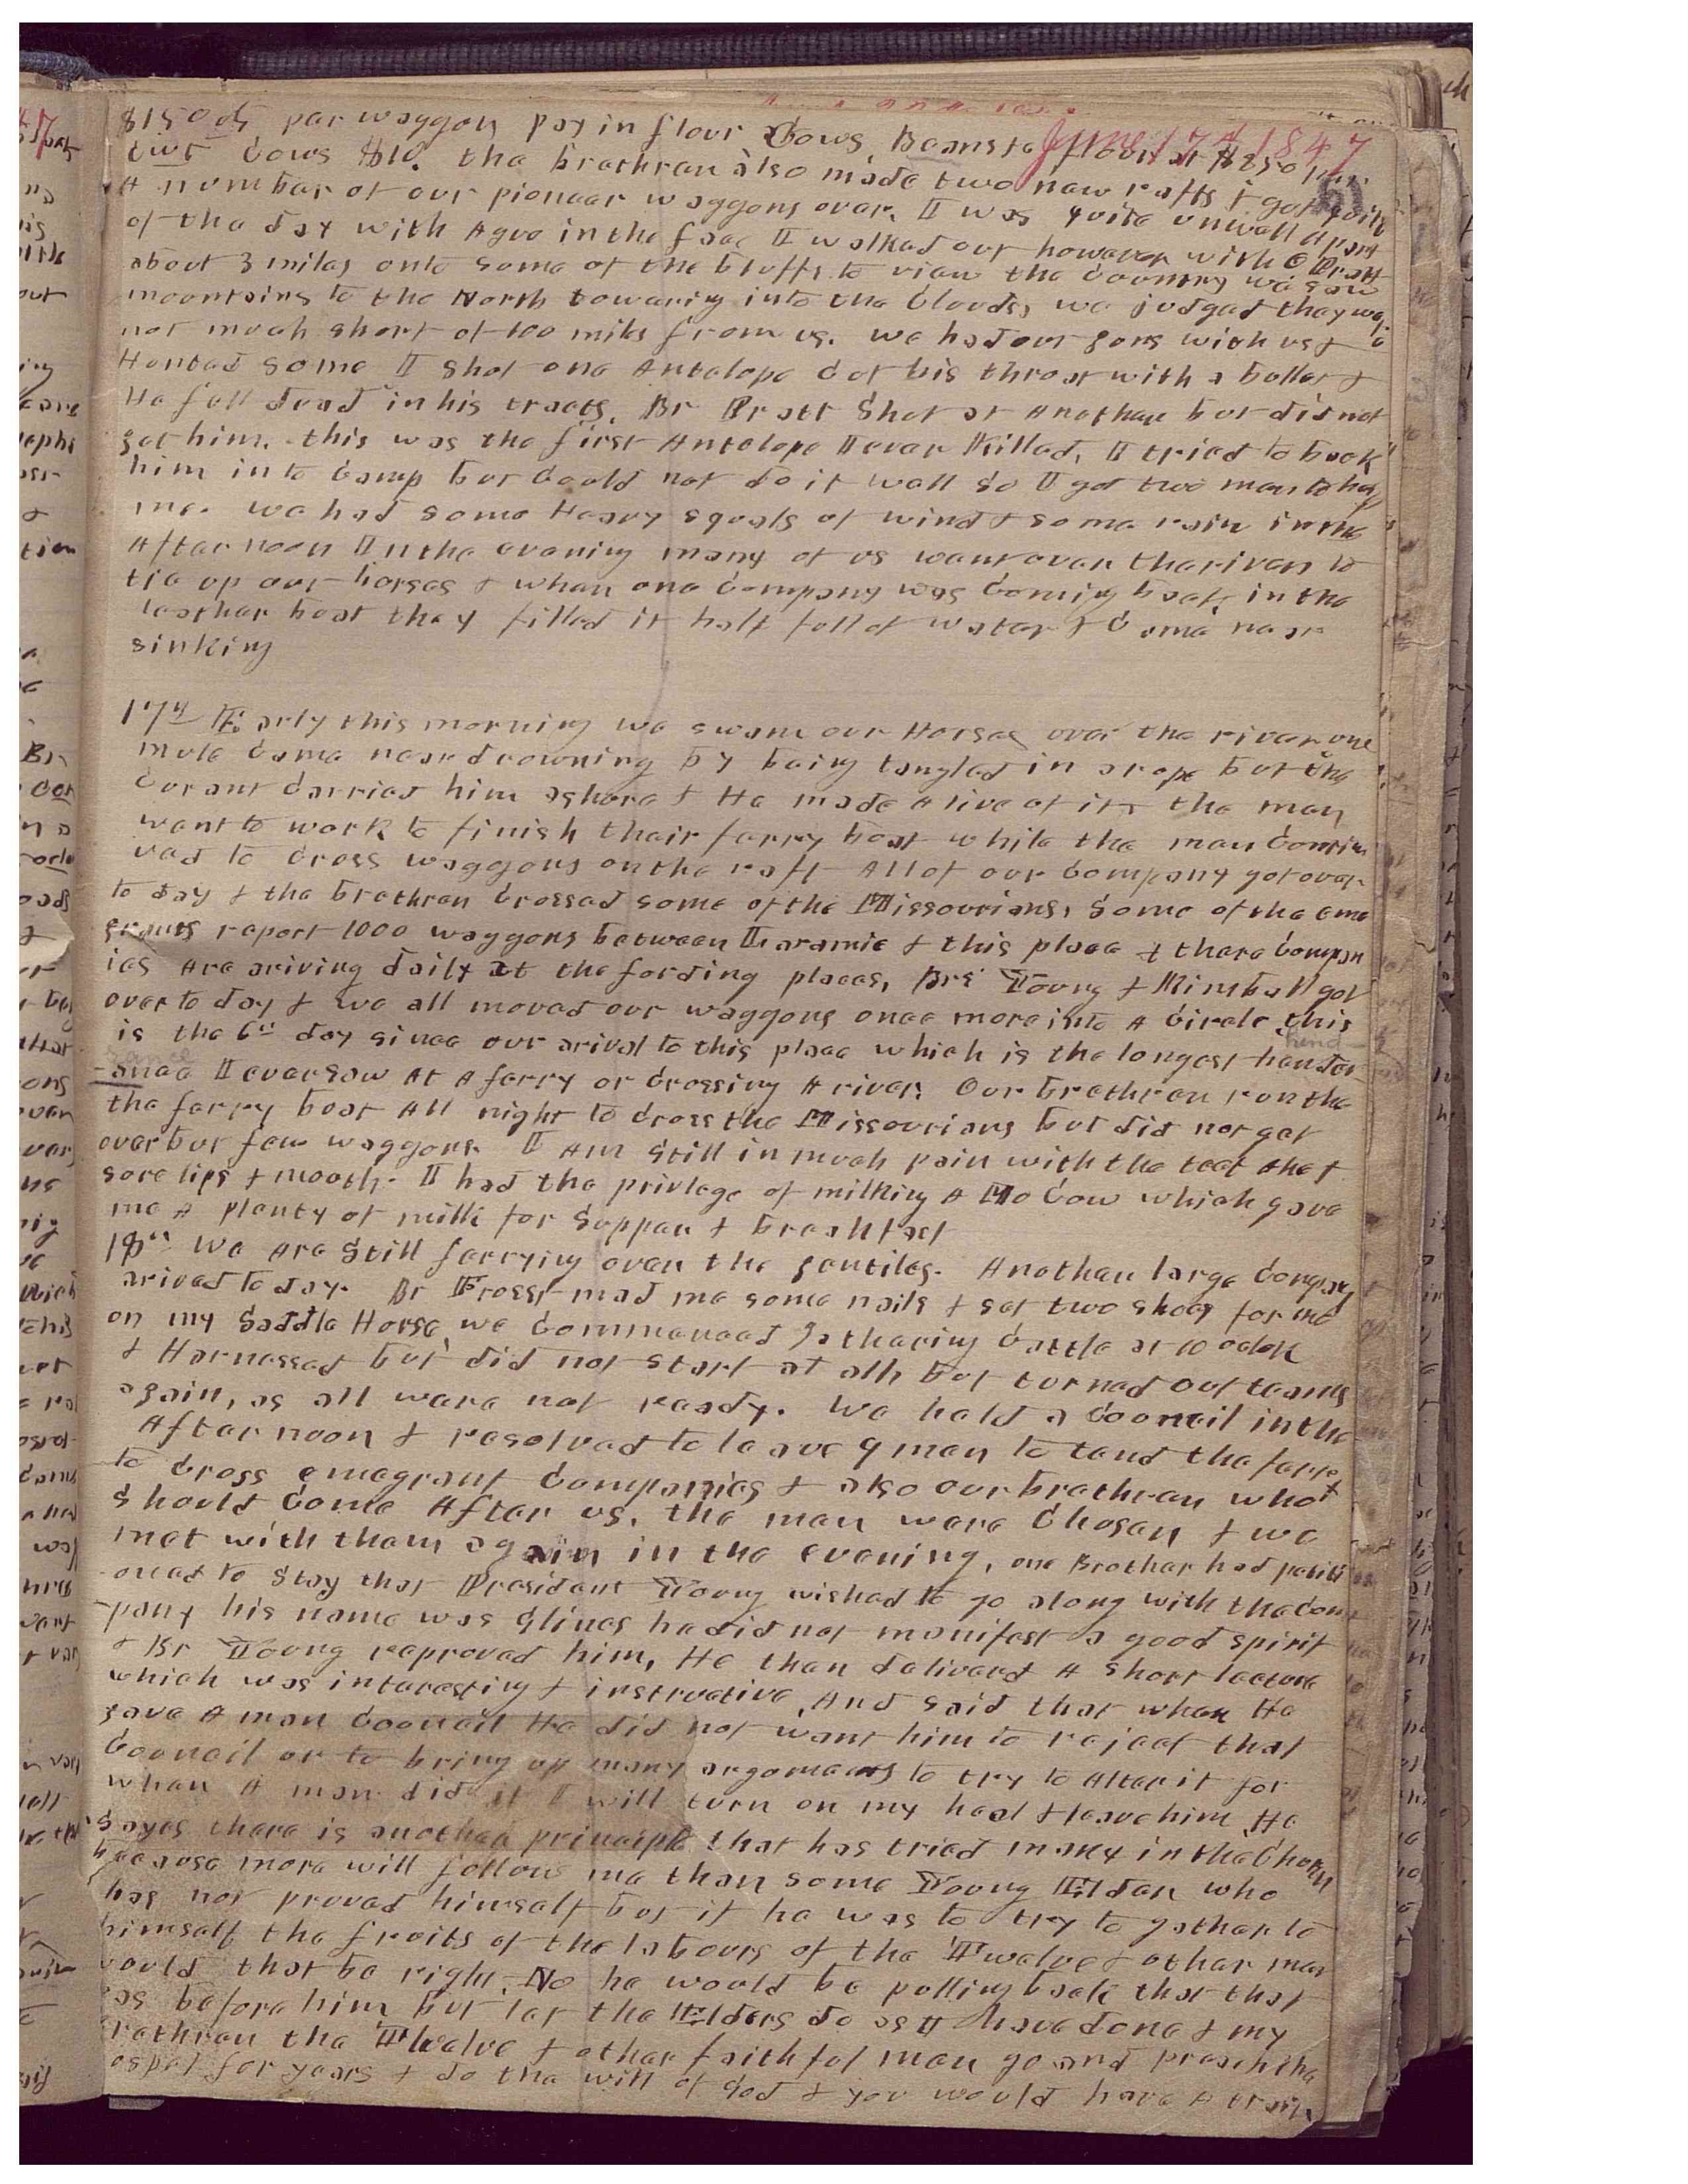 June 17th 1847
$150 cts par waggon pay in flour Cows, Beans &c flour at $2.50 per
cwt Cows $10. the brethren also made two new rafts & got quite
A number of our pioneer waggons over. I was quite unwell A part
of the day with Ague in the face I walked out however with O Pratt
about 3 miles onto some of the bluffs to view the Country we saw
mountains to the North towaring into the Clouds, we judged they were
not much short of 100 miles from us. we had our guns with us &
Hunted some I shot one Antelope Cut his throat with a bullet &
He fell dead in his tracts. Br Pratt Shot at Another but did not
get him. this was the first Antelope I ever Killed, I tried to back
him in to Camp but Could not do it well So I got two men to help
me. we had some Heavy squals of wind & some rain in the
After noon In the evening many of us went over the river to
tie up our horses & when one Company was Coming back in the
leather boat they filled it half full of water & Came near
sinking
17th Early this morning we swam our Horses over the river one
mule Came near drowning by being tangled in a rope but the
Curant Carried him ashore & He made A live of it & the men
went to work to finish thair farry boat while the men Contin
ued to Cross waggons on the raft All of our Company got over
to day & the brethren Crossed some of the Missourians, Some of the eme
grants report 1000 waggons between Laramie & this place & there Compan
ies Are ariving daily at the fording places, Brs Young & Kimball got
over to day & we all moved our waggons once more into A Circle this
is the 6th day since our arival to this place which is the longest hender
hind
-ance I ever saw At A farry or Crossing A river. Our brethren run the
sance
the farry boat All night to Cross the Missourians but did not get
over but few waggons. I Am Still in much pain with the teeth ake &
sore lips & mouth. I had the privlege of milking A Mo Cow which gave
me A plenty of milk for Supper & breakfast
18th We Are Still farrying over the gentiles. Another large Company
arived to day. Br Frost mad me some nails & set two shoes for me
on my Saddle Horse, we Commenced gathering Cattle at 10 oclok
& Harnessed but did not start at all but turned out teams
again, as all were not ready. We held a Council in the
After noon & resolved to leave 9 men to tend the farry
to Cross emegrant Companies & also our brethren who
should Come After us, the men were Chosen & we
met with them again in the evening, one Brother had petiti
-oned to Stay that President Young wished to go along with the Com
-pany his name was Glines he did not manifest a good spirit
& Br Young reproved him, He than deliverd A short lecture
which was interesting & instructive And said that when He
gave A man Council He did not want him to reject that
Council or to bring up many arguments to try to Alter it for
when A man did it I will turn on my heal & leave him He
sayes there is another principle that has tried many in the Church
because more will follow me than some Young Elder who
has not proved himself but if he was to try to gather to
himself the fruits of the labours of the Twelve & other men
would that be right. No he would be pulling back that that
was before him but let the Elders do as I have done & my
brethren the Twelve & other faithful men go and preach the
ospel for years & do the will of God & you would have A train